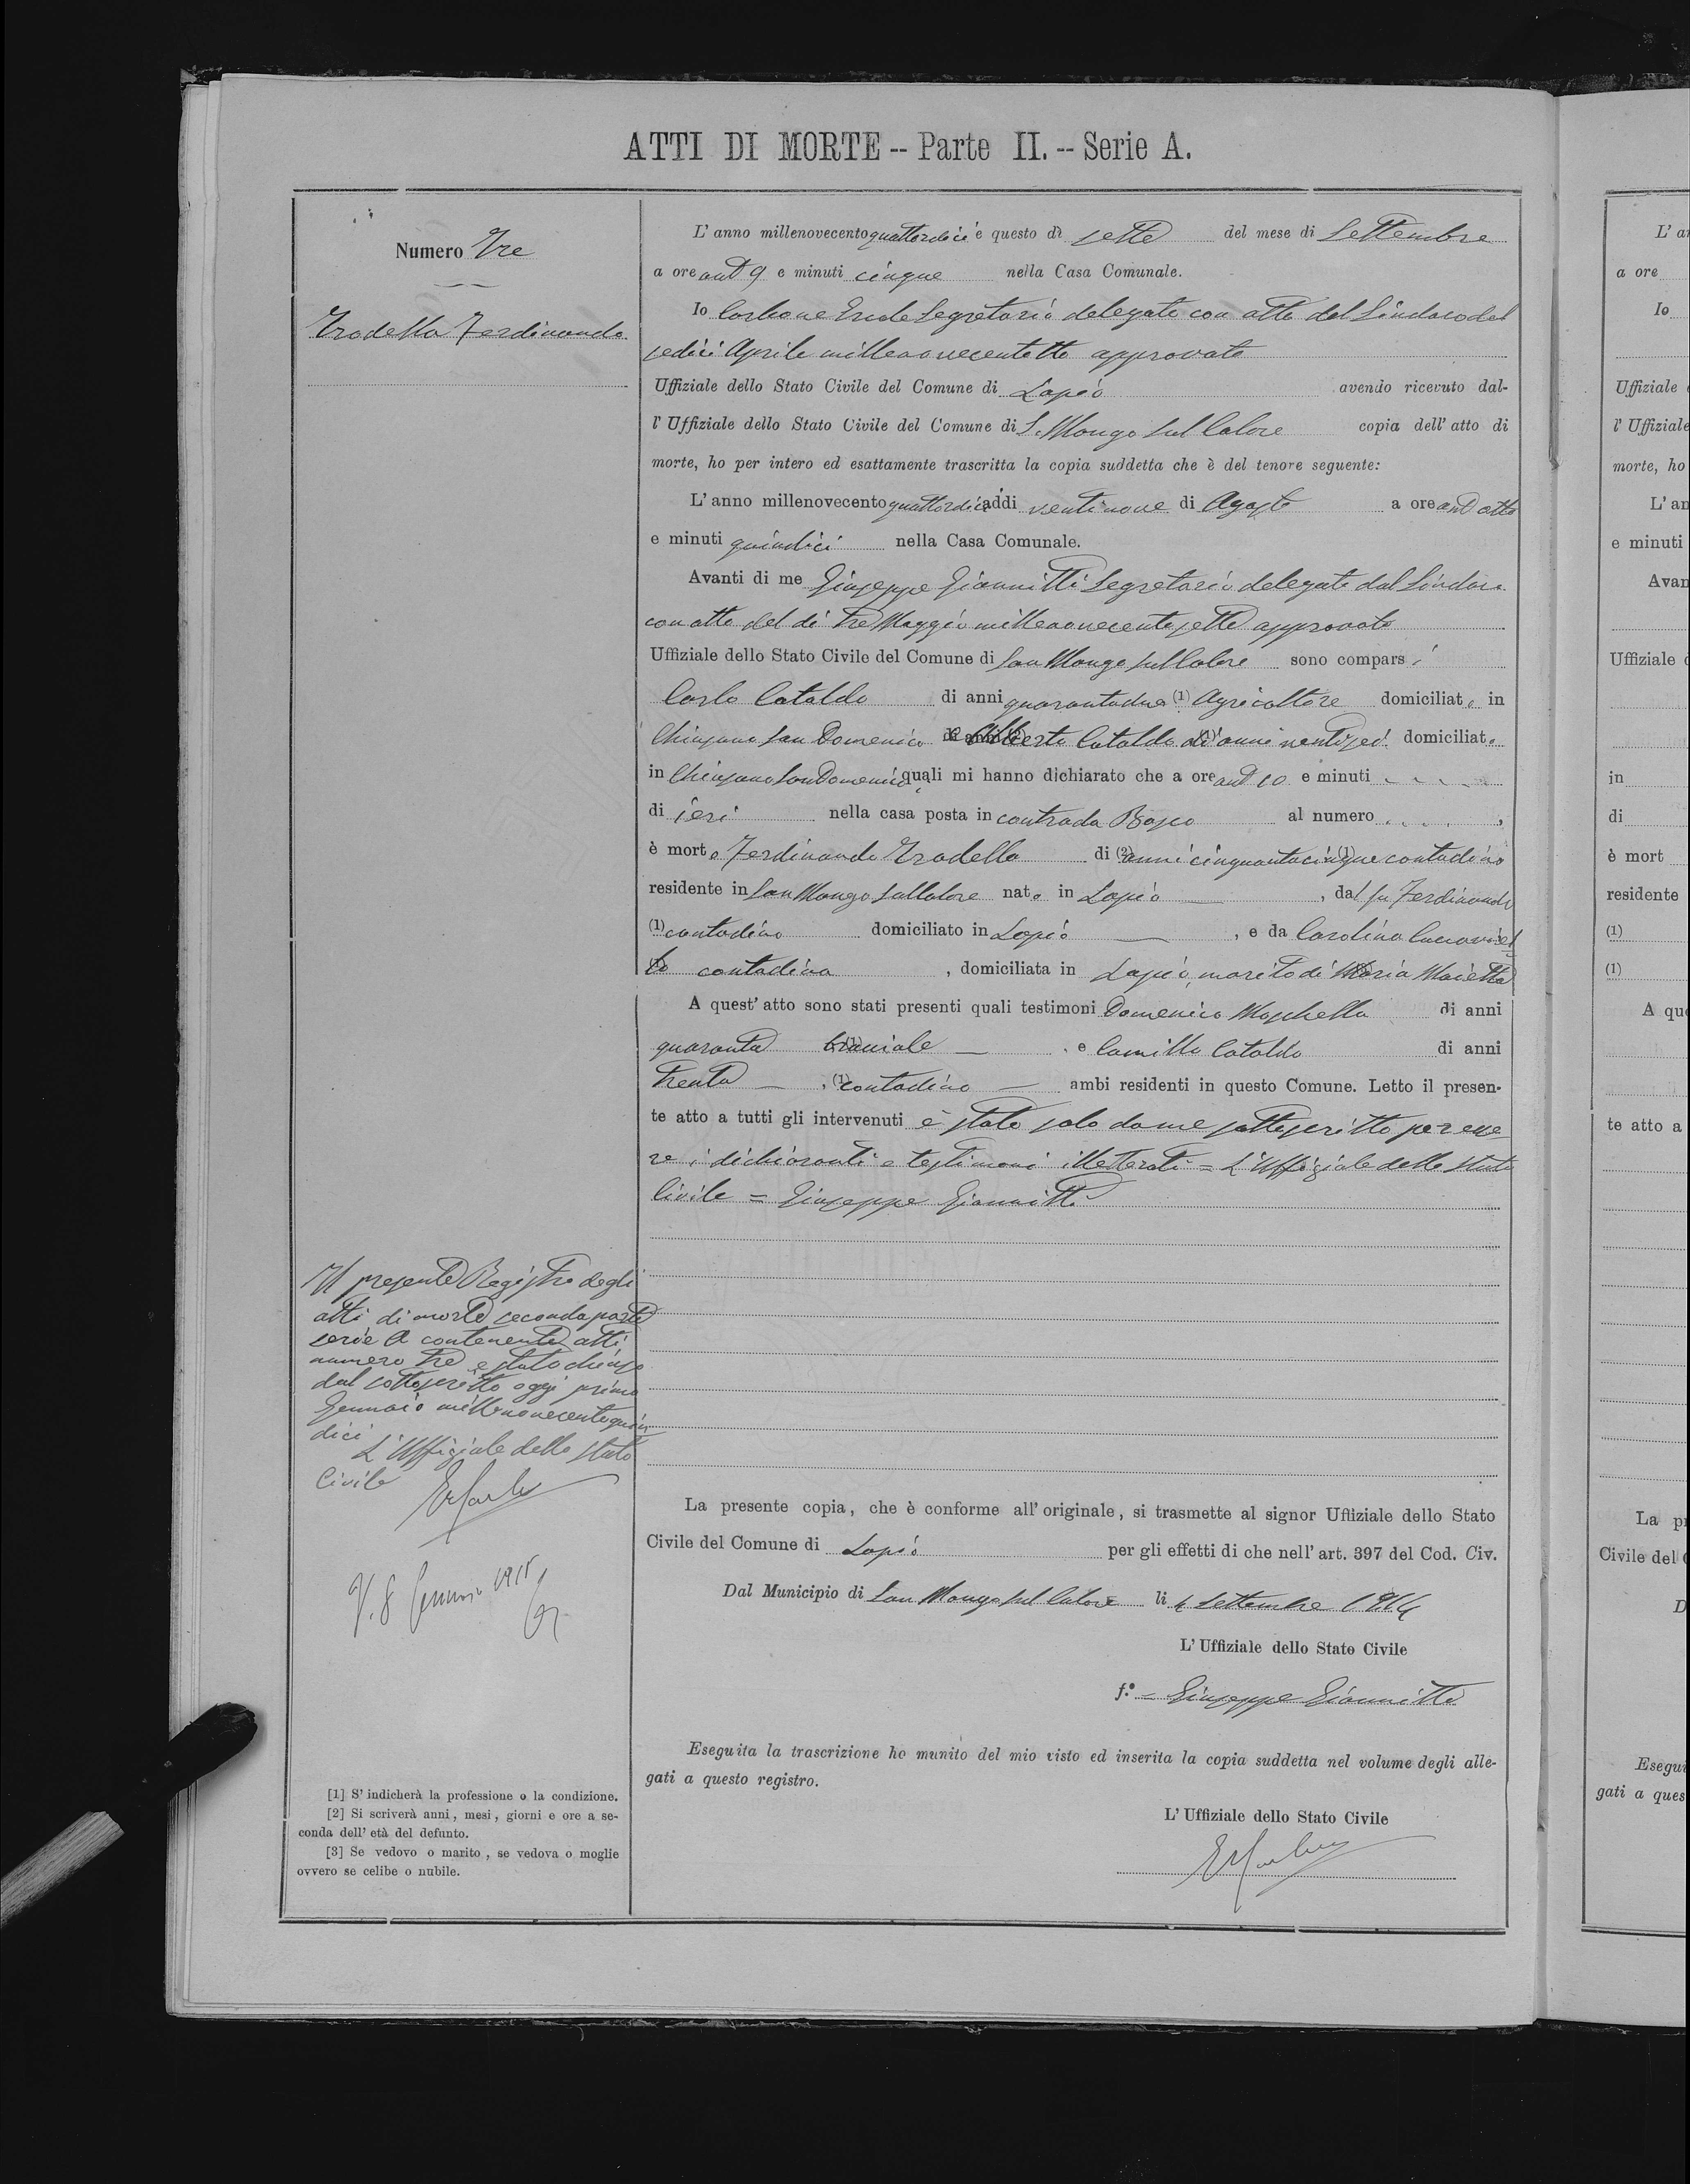 ATTI DI MORTE -- Parte II. -- Serie A.
Numero Tre
Trodella Ferdinando
L' anno millenovecentoquattordici e questo dì sette del mese di Settembre
a ore ant 9 e minuti cinque nella Casa Comunale.
Io Carbone Segretario delegato con atto del Sindaco del
sedici Aprile millenovecentotto approvato
Uffiziale dello Stato Civile del Comune di Lapio avendo ricevuto dal-
l' Uffiziale dello Stato Civile del Comune di S. Mango sul Calore copia dell' atto di
morte, ho per intero ed esattamente trascritta la copia suddetta che è del tenore seguente:
L' anno millenovecentoquattordici addi ventinove di Agosto a ore ant otto
e minuti quindici nella Casa Comunale.
Avanti di me Giuseppe Giannitti Segretario delegato dal Sindaco
con atto del dì tre Maggio millenovecentosette approvato
Uffiziale dello Stato Civile del Comune di San Mango sul Calore sono comparsi
Carlo Cataldo di anni quarantadue (1) Agricoltore domiciliato in
Chiusano San Domenico e Alberto Cataldo di anni ventisei domiciliato
in Chiusano San Domenico, quali mi hanno dichiarato che a ore ant 10 e minuti
di ieri nella casa posta in contrada Bosco al numero
è morto Ferdinando Trodella di (2) anni cinquantacinque (1) contadino
residente in San Mango sul Calore nato in Lapio, dal fu Ferdinando
(1) contadino domiciliato in Lapio, e da Carolina
contadina, domiciliata in Lapio, marito di Maria Maietta
A quest' atto sono stati presenti quali testimoni Domenico Moschella di anni
quaranta (1) e Camillo Cataldo di anni
trenta, (1) contadino ambi residenti in questo Comune. Letto il presen-
te atto a tutti gli intervenuti è stato solo da me sottoscritto per esse
re i dichiaranti e testimoni illetterati = L'Uffiziale dello Stato
Civile = Giuseppe Giannitti
Il presente Registro degli
atti di morte seconda parte
serie A contenente atti
numero tre è stato chiuso
dal sottoscritto oggi primo
Gennaio millenovecentoquin
dici
L'Uffiziale dello Stato
Civile
V. 8 Gennaio 1915
La presente copia, che è conforme all' originale, si trasmette al signor Uffiziale dello Stato
Civile del Comune di Lapio per gli effetti di che nell' art. 397 del Cod. Civ.
Dal Municipio di San Mango sul Calore li 4 Settembre 1914
L' Uffiziale dello Stato Civile
f.° = Giuseppe Giannitti
Eseguita la trascrizione ho munito del mio visto ed inserita la copia suddetta nel volume degli alle-
gati a questo registro.
L' Uffiziale dello Stato Civile
[1] S' indicherà la professione o la condizione.
[2] Si scriverà anni, mesi, giorni e ore a se-
conda dell' età del defunto.
[3] Se vedovo o marito, se vedova o moglie
ovvero se celibe o nubile.
L' a
a ore
Io
Uffiziale
l' Uffiziale
morte, ho
L' an
e minuti
Avan
Uffiziale
in
di
è mort
residente
(1)
(1)
A qu
te atto a
La p
Civile del
D
Esegui
gati a ques